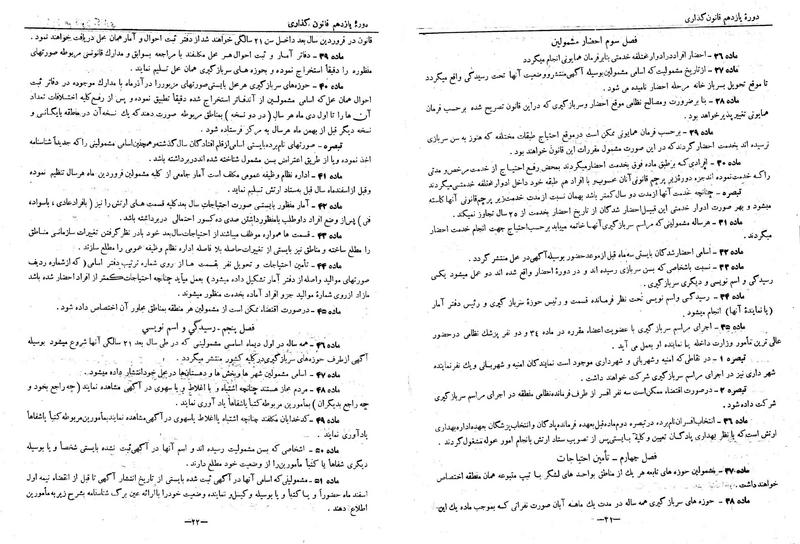 دورهٔ یازدهم قانون گذاری
فصل سوم احضار مشمولین
ماده ۲۶ - احضار افراد در ادوار مختلفه خدمتی بنابر فرمان همایونی انجام میگردد
ماده ۲۷ - از تاریخ مشمولیت که اسامی مشمولین بوسیله آگهی منتشر و وضعیت آنها تحت رسیدگی واقع میگردد
تا موقع تحویل بسرباز خانه مرحله احضار نامیده می شود.
ماده ۲۸ - بنا بر ضرورت و مصالح نظامی موقع احضار و سربازگیری که در این قانون تصریح شده برحسب فرمان
همایونی تغییر پذیر خواهد بود.
ماده ۲۹ - برحسب فرمان همایونی ممکن است در موقع احتیاج طبقات مختلفه که هنوز به سن سربازی
نرسیده اند بخدمت احضار گردند که در این صورت مشمول مقررات این قانون خواهند بود.
ماده ۳۰ - افرادی که بر طبق ماده فوق بخدمت احضار میگردند بمحض رفع احتیاج از خدمت مرخص و مدتی
را که خدمت نموده اند جزء دورهٔ زیر پرچم قانونی آنان محسوب و با افراد هم طبقه خود داخل ادوار مختلفه خدمتی میگردند
تبصره - چنانچه خدمت آنها از مدت دو سال کمتر باشد بهمان نسبت از مدت خدمت زیر پرچم قانونی آنها کاسته
میشود و بهر صورت ادوار خدمتی این قبیل احضار شدگان از تاریخ احضار بخدمت از ۲۵ سال تجاوز نمیکند.
ماده ۳۱ - هر ساله مشمولینی که مراسم سربازگیری آنها خاتمه مییابد برحسب احتیاج جهت انجام خدمت احضار
میگردند.
ماده ۳۲ - اسامی احضار شدگان بایستی سه ماه قبل از موعد حضور بوسیله آگهی در محل منتشر گردد.
ماده ۳۳ - نسبت باشخاصی که بسن سربازی رسیده اند و در دورهٔ احضار واقع شده اند دو عمل میشود یکی
رسیدگی و اسم نویسی و دیگری سربازگیری.
ماده ۳۴ - رسیدگی و اسم نویسی تحت نظر فرمانده قسمت و رئیس حوزهٔ سربازگیری و رئیس دفتر آمار
(یا نمایندهٔ آنها) انجام میشود.
ماده ۳۵ - اجرای مراسم سربازگیری با عضویت اعضاء مقرره در ماده ۳۴ و دو نفر پزشک نظامی در حضور
عالی ترین مأمور وزارت داخله یا نماینده او بعمل می آید.
تبصره ۱ - در نقاطی که امنیه و شهربانی و شهرداری موجود است نمایندگان امنیه و شهربانی و یک نفر نماینده
شهر داری نیز در اجرای مراسم سربازگیری شرکت خواهند داشت.
تبصره ۲ - در صورت اقتضاء ممکن است سه نفر افسر از طرف فرمانده نظامی منطقه در اجرای مراسم سربازگیری
شرکت داده شود.
ماده ۳۶ - انتخاب افسران نامبرده در تبصره دوم ماده قبل بعهده فرمانده پادگان و انتخاب پزشکان بعهده اداره بهداری
ارتش است که یا نظر بهداری پادگان تعیین و کلیهٔ بایستی پس از تصویب ستاد ارتش بانجام امور محوله مشغول گردند.
فصل چهارم - تأمین احتیاجات
ماده ۳۷ - مشمولین حوزه های تابعه هر یک از مناطق بواحد های لشکر یا تیپ متبوعه همان منطقه اختصاص
خواهند داشت.
ماده ۳۸ - حوزه های سربازگیری همه ساله در مدت یک ماهه آبان صورت نفراتی که بموجب ماده یک این
-۲۱-
دورهٔ یازدهم قانون گذاری
قانون در فروردین سال بعد داخل سن ۲۱ سالگی خواهند شد از دفتر ثبت احوال و آمار همان محل دریافت خواهند نمود.
ماده ۳۹ - دفاتر آمار و ثبت احوال هر محل مکلفند با مراجعه بسوابق و مدارک قانونی مربوطه صورتهای
منظوره را دقیقاً استخراج نموده و بحوزه های سربازگیری همان محل تسلیم نمایند.
ماده ۴۰ - حوزه های سربازگیری هر محل بایستی صورتهای مزبور را در آذرماه با مدارک موجوده در دفتر ثبت
احوال همان محل که اسامی مشمولین از آن دفاتر استخراج شده دقیقاً تطبیق نموده و پس از رفع کلیه اختلافات تعداد
آن ها را تا اول دی ماه هر سال (در دو نسخه) بمناطق مربوطه صورت دهند که یک نسخه آن در منطقه بایگانی و
نسخه دیگر قبل از بهمن ماه هر سال به مرکز فرستاده شود.
تبصره - صورتهای نامبرده بایستی اسامی از قلم افتادگان سال گذشته و همچنین اسامی مشمولینی را که جدیداً شناسنامه
اخذ نموده و یا از طریق اعتراض بسن مشمول شناخته شده اند در بر داشته باشد.
ماده ۴۱ - اداره نظام وظیفه عمومی مکلف است آمار جامعی از کلیه مشمولین فروردین ماه هر سال تنظیم نموده
وقبل از اسفند ماه سال قبل بستاد ارتش تسلیم نماید.
ماده ۴۲ - آمار منظور بایستی صورت احتیاجات سال بعد کلیه قسمت های ارتش را نیز (بافراد عادی، باسواده
فنی) پس از وضع افراد داوطلب بامنظور داشتن صدی ده کسور احتمالی در بر داشته باشد.
ماده ۴۳ - قسمت ها همواره موظف میباشند از احتیاجات سال بعد خود بادر نظر گرفتن تغییرات سازمانی مناطق
را مطلع ساخته و مناطق نیز بایستی از تغییرات حاصله بلا فاصله اداره نظام وظیفه عمومی را مطلع سازند.
ماده ۴۴ - تأمین احتیاجات و تحویل نفر بقسمت ها از روی شماره ترتیب دفتر اسامی (که از شماره ردیف
صورتهای موالید واصله از دفتر آمار تشکیل داده میشود) بعمل میآید چنانچه احتیاجات کمتر از افراد احضار شده باشد
مازاد از روی شمارهٔ موالید جزو افراد آماده بخدمت منظور میشوند.
ماده ۴۵ - در صورت اقتضاء ممکن است از مشمولین هر منطقه بمناطق مجاور آن اختصاص داده شود.
فصل پنجم - رسیدگی و اسم نویسی
ماده ۴۶ - همه ساله در اول دیماه اسامی مشمولینی که در طی سال بعد ۲۱ سالگی آنها شروع میشود بوسیله
آگهی از طرف حوزه های سربازگیری در کلیه کشور منتشر میگردد.
ماده ۴۷ - اسامی مشمولین شهر ها و بخش ها و دهستان ها در محل خود انتشار داده میشود.
ماده ۴۸ - مردم مجاز هستند چنانچه اشتباه و یا اغلاط و یا سهوی در آگهی مشاهده نمایند (چه راجع بخود و
چه راجع بدیگران) بمأمورین مربوطه کتباً یا شفاهاً یاد آوری نمایند.
ماده ۴۹ - کدخدایان مکلفند چنانچه اشتباه یا اغلاط یا سهوی در آگهی مشاهده نمایند بمأمورین مربوطه کتباً یا شفاهاً
یادآوری نمایند.
ماده ۵۰ - اشخاصی که بسن مشمولیت رسیده اند و اسم آنها در آگهی ثبت نشده بایستی شخصاً و یا بوسیله
دیگری شفاهاً یا کتباً مأمورین را از وضعیت خود مطلع دارند.
ماده ۵۱ - مشمولینی که اسامی آنها در آگهی ثبت شده بایستی از تاریخ انتشار آگهی تا قبل از انقضاء نیمه اول
اسفند ماه حضوراً و یا کتباً و یا بوسیله وکیل و نماینده وضعیت خود را با ارائه عین برگ شناسنامه بشرح زیر به مأمورین
اطلاع دهند.
-۲۲-